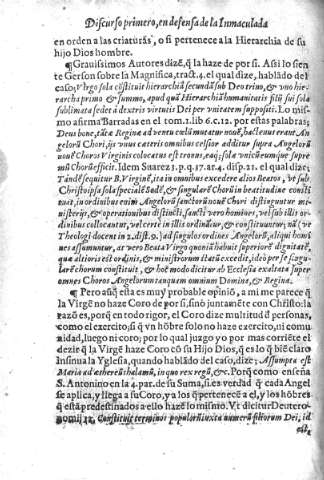 Discurso primero, en defensa de la Inmaculada
en orden a las criaturas, o si pertenece a la Hierarchia de su
hijo Dios hombre.
¶ Grauissimos Autores dizē, q̄ la haze de por si. Assi lo siente
Gerson sobre la Magnifica, tract. 4. el qual dize, hablādo del
caso; Virgo sola cōstituit hierarchiā secundā sub Deo trino, & vno hierarcha
primo & summo, apud quā Hierarchiā humanitatis filii sui sola
sublimata sedet à dextris virtutis Dei per vnitatem suppositi. Lo mismo
afirma Barradas en el tom. 1. lib. 6. c. 12. por estas palabras;
Deus bone, tāta Regina ad ventu cælū mutatur nouē, hactenus erant Angelorū
Chori, ijs vnus cæteris omnibus celsior additur supra Angelorū
nouē Choros Virginis colocatus est tronus, eaq; sola vnicū eumque supremū
Chorū efficit. Idem Suarez 3. p. q. 37. ar. 4. disp. 21. el qual dize;
Tandē sequitur B. Virginē, ita in omnibus excedere alios Beatos, vt sub
Christo ipsa sola specialē Sedē, & singularē Chorū in beatitudine constituat,
in ordinibus enim Angelorū sanctorū nouē Chori distinguntur ministerijs,
& operationibus distincti, sancti vero homines, vel sub illis ordinibus
collocantur, vel certè in illis ordinātur, & constituuntur; nā (vt
Theologi docent in 2. dist. 9.) ad singulos ordines Angelorū, aliqui homines
assumuntur, at vero Beata Virgo quoniā habuit superiorē dignitatē,
qua altioris est ordinis, & ministrorum statū excedit, ideo per se singularē
chorum constituit, & hoc modo dicitur ab Ecclesia exaltata super
omnes Choros Angelorum tanquam omnium Domina, & Regina.
¶ Pero aūq̄ esta es muy probable opinió, a mi me parece q̄
la Virgē no haze Coro de por si, sinó juntamēte con Christo: la
razō es, porq̄ en todo rigor, el Coro dize multitud d̄ personas,
como el exercito, si q̄ vn hōbre solo no haze exercito, ni comunidad,
luego ni coro; por lo qual juzgo yo por mas corriēte el
dezir q̄ la Virgē haze Coro cō su Hijo Dios, q̄ es lo q̄ biē claro
insinua la Yglesia, quando hablādo del caso, dize; Assumpta est
Maria ad æthereū thalamū, in quo rex regū, &c. Porq̄ como enseña
S. Antonino en la 4. par. de su Suma, si es verdad q̄ cada Angel
se aplica, y llega a su Coro, ya los q̄ pertenecē a el, y los hōbres
q̄ está predestinados a ello hazē lo mismo. Vt dicitur Deuteronomij
32. Constituit terminos populorū iuxta numerū filiorum Dei, id